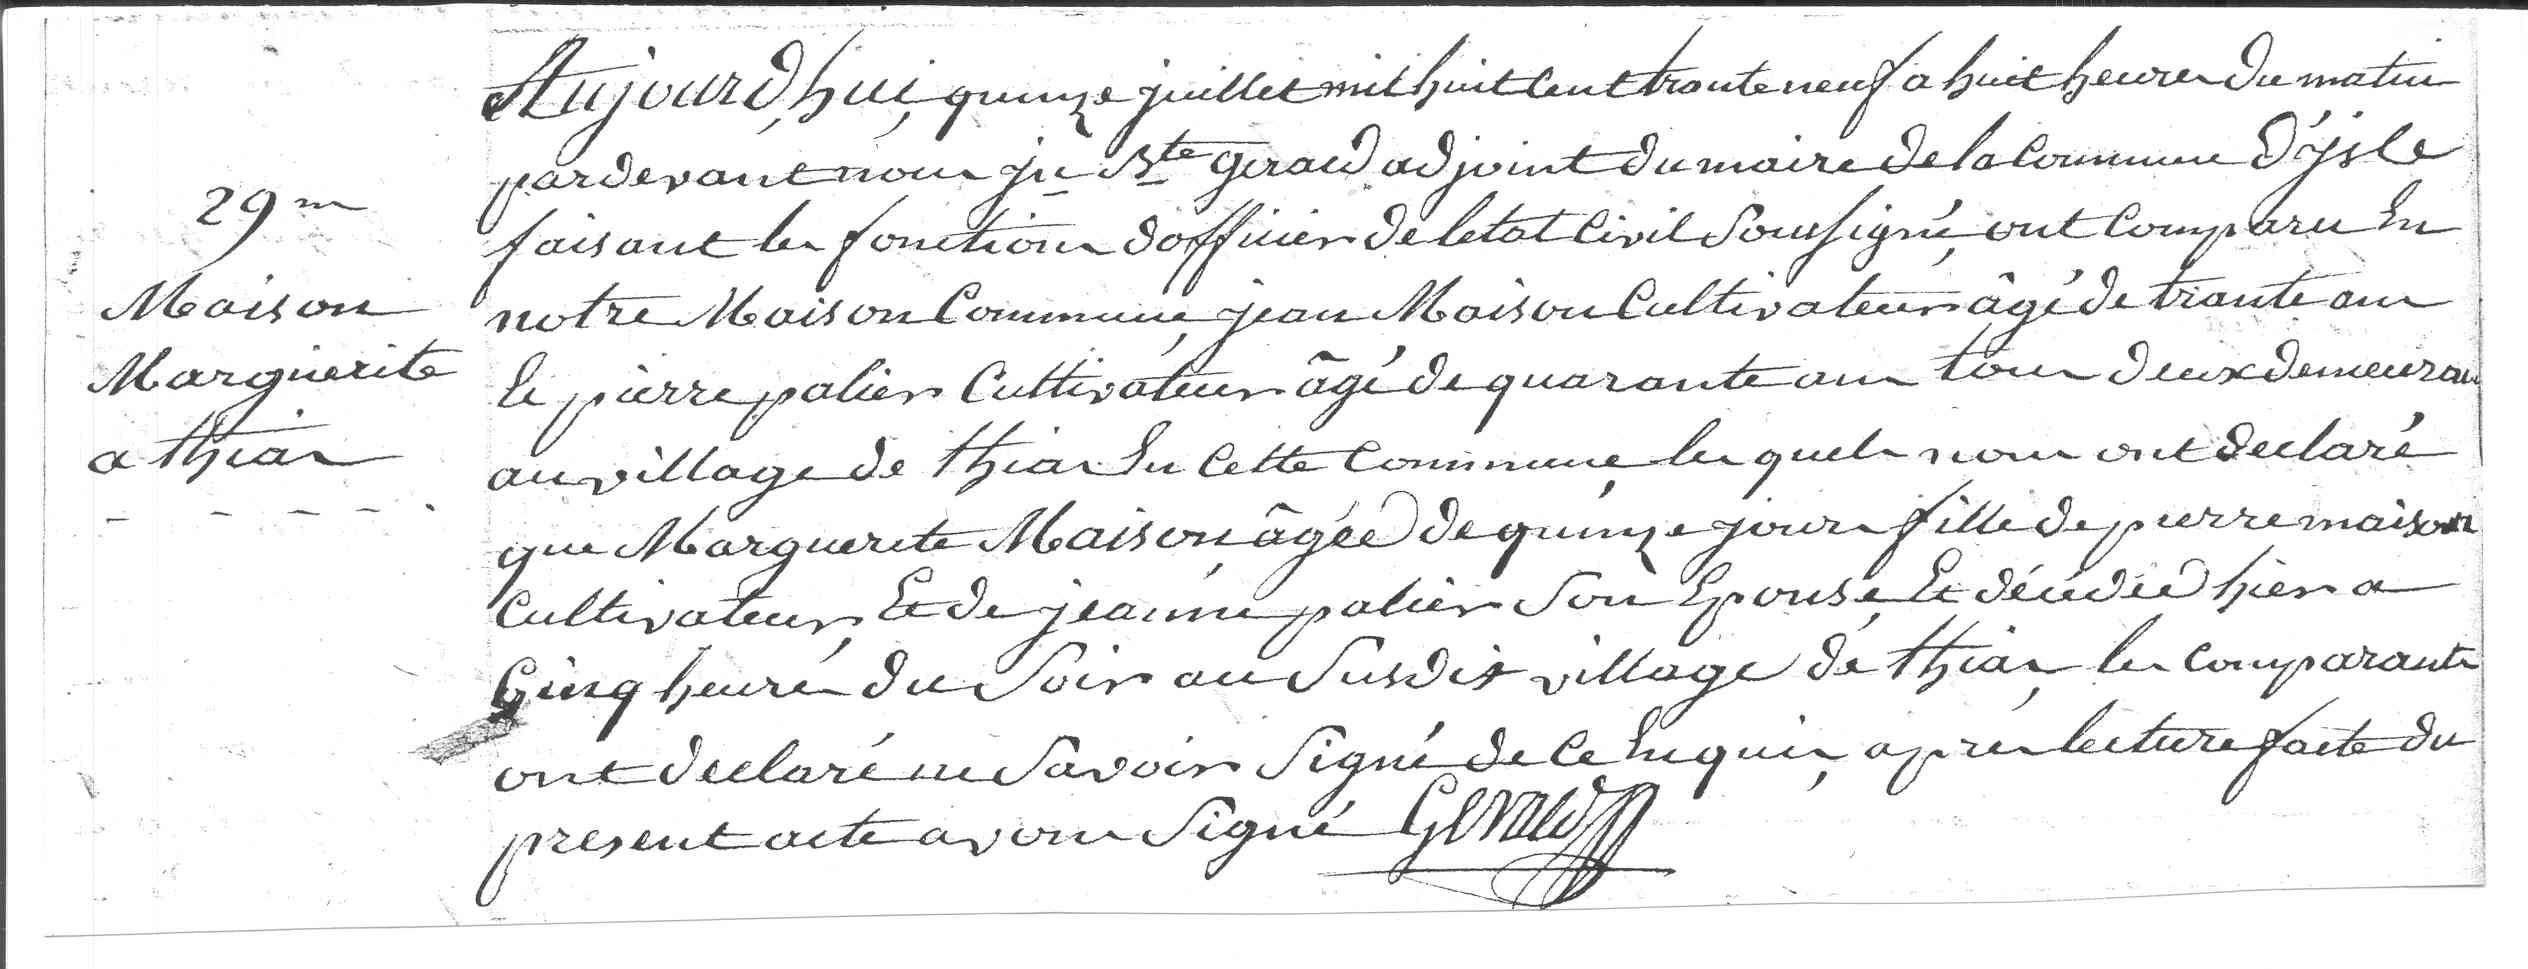 29m
Maison
Marguerite
a thias
Aujourd'hui, quinze juillet mil huit cent trante neuf a huit heures du matin
pardevant nous jn Bte Geraud adjoint du maire de la Commune d'jsle
faisant les fonctions dofficier de letat Civil Soussigné, ont Comparu En
notre Maison Commune, jean Maison Cultivateur âgé de trante ans
Et pierre palier Cultivateur âgé de quarante ans tous deux demeurau
au village de thias En Cette Commune, les quels nous ont declaré
que Marguerite Maison, âgée de quinze jours fille de pierre maison
Cultivateur, Et de jeanne palier Son Epouse, Et décédée hier a
Cinq heures du Soir au Susdit village de thias, les Comparants
ont declaré ne Savoir Signé de Ce Enquis, apres lecture faite du
present acte avons Signé Geraud